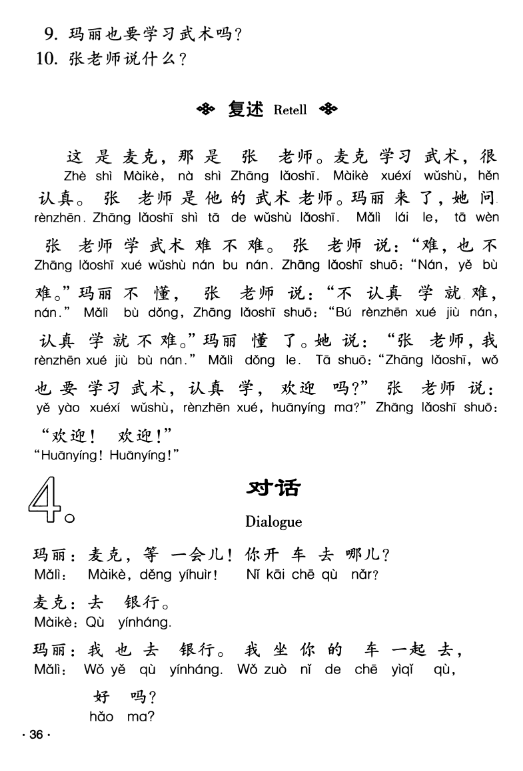 9. 玛丽也要学习武术吗？
10. 张老师说什么？
复述 Retell
这 是 麦克，那 是 张 老师。麦克 学习 武术，很
Zhè shì Màikè, nà shì Zhāng lǎoshī. Màikè xuéxí wǔshù, hěn
认真。张 老师 是 他 的 武术 老师。玛丽 来 了，她 问
rènzhēn. Zhāng lǎoshī shì tā de wǔshù lǎoshī. Mǎlì lái le, tā wèn
张 老师 学 武术 难 不 难。张 老师 说：“难，也 不
Zhāng lǎoshī xué wǔshù nán bu nán. Zhāng lǎoshī shuō: “Nán, yě bù
难。”玛丽 不 懂，张 老师 说：“不 认真 学 就 难，
nán.” Mǎlì bù dǒng, Zhāng lǎoshī shuō: “Bú rènzhēn xué jiù nán,
认真 学 就 不 难。”玛丽 懂 了。她 说：“张 老师，我
rènzhēn xué jiù bù nán.” Mǎlì dǒng le. Tā shuō: “Zhāng lǎoshī, wǒ
也 要 学习 武术，认真 学，欢迎 吗？”张 老师 说：
yě yào xuéxí wǔshù, rènzhēn xué, huānyíng ma?” Zhāng lǎoshī shuō:
“欢迎！欢迎！”
“Huānyíng! Huānyíng!”
4. 对话
Dialogue
玛丽：麦克，等 一会儿！你 开 车 去 哪儿？
Mǎlì: Màikè, děng yíhuìr! Nǐ kāi chē qù nǎr?
麦克：去 银行。
Màikè: Qù yínháng.
玛丽：我 也 去 银行。我 坐 你 的 车 一起 去，
Mǎlì: Wǒ yě qù yínháng. Wǒ zuò nǐ de chē yìqǐ qù,
好 吗？
hǎo ma?
· 36 ·